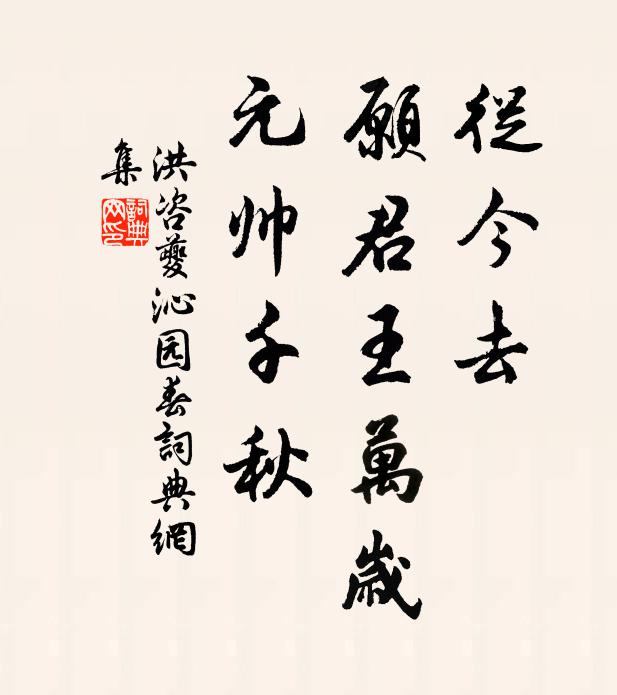 從今去
願君王萬歲
元帅千秋
洪咨夔沁园春詞典網
集
詞典
网印